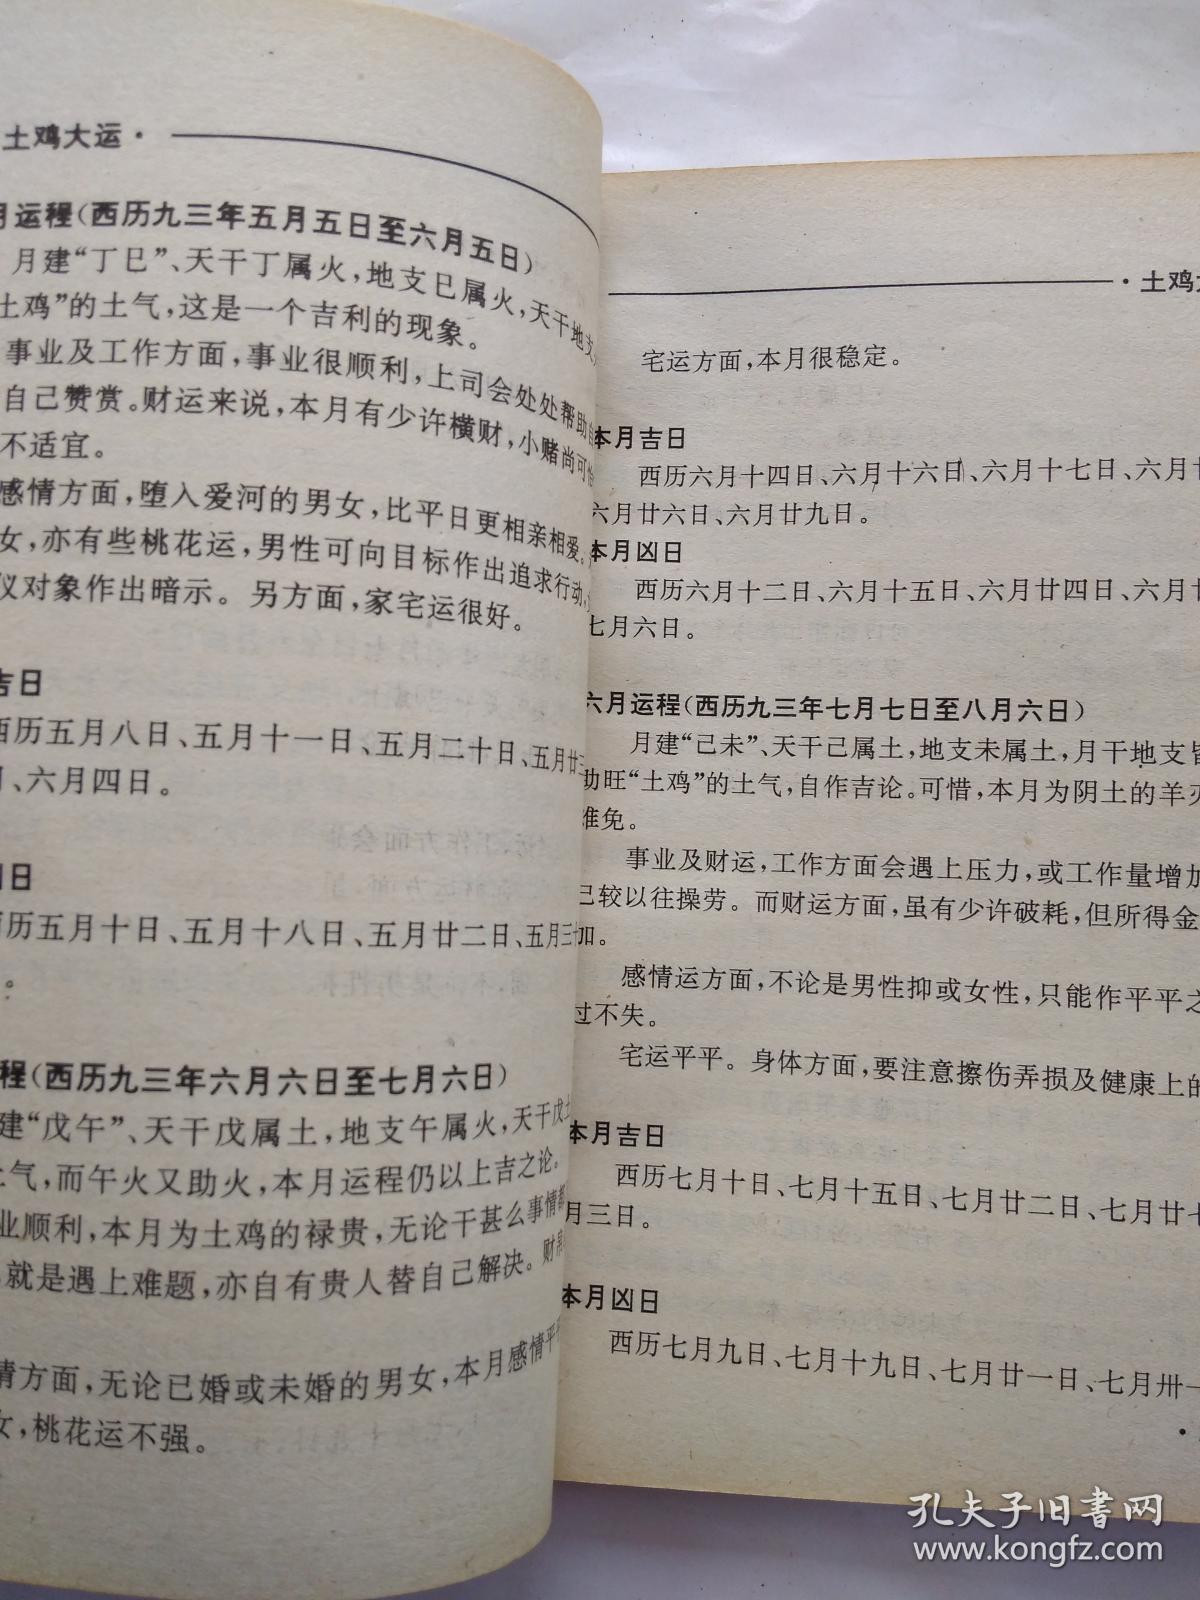 土鸡大运·
月运程(西历九三年五月五日至六月五日)
月建“丁巳”、天干丁属火,地支巳属火,天干地支
土鸡”的土气,这是一个吉利的现象。
事业及工作方面,事业很顺利,上司会处处帮助自
自己赞赏。财运来说,本月有少许横财,小赌尚可怡
不适宜。
感情方面,堕入爱河的男女,比平日更相亲相爱。
女,亦有些桃花运,男性可向目标作出追求行动,
仪对象作出暗示。另方面,家宅运很好。
吉日
西历五月八日、五月十一日、五月二十日、五月廿三
、六月四日。
日
历五月十日、五月十八日、五月廿二日、五月三十
。
程(西历九三年六月六日至七月六日)
建“戊午”、天干戊属土,地支午属火,天干戊土
气,而午火又助火,本月运程仍以上吉之论。
业顺利,本月为土鸡的禄贵,无论干甚么事情都
就是遇上难题,亦自有贵人替自己解决。财帛
情方面,无论已婚或未婚的男女,本月感情平平
女,桃花运不强。
·土鸡大
宅运方面,本月很稳定。
本月吉日
西历六月十四日、六月十六日、六月十七日、六月十
六月廿六日、六月廿九日。
本月凶日
西历六月十二日、六月十五日、六月廿四日、六月廿
七月六日。
六月运程(西历九三年七月七日至八月六日)
月建“己未”、天干己属土,地支未属土,月干地支皆
助旺“土鸡”的土气,自作吉论。可惜,本月为阴土的羊刃
难免。
事业及财运,工作方面会遇上压力,或工作量增加
己较以往操劳。而财运方面,虽有少许破耗,但所得金
加。
感情运方面,不论是男性抑或女性,只能作平平之
过不失。
宅运平平。身体方面,要注意擦伤弄损及健康上的
本月吉日
西历七月十日、七月十五日、七月廿二日、七月廿七
月三日。
本月凶日
西历七月九日、七月十九日、七月廿一日、七月卅一
孔夫子旧书网
www.kongfz.com